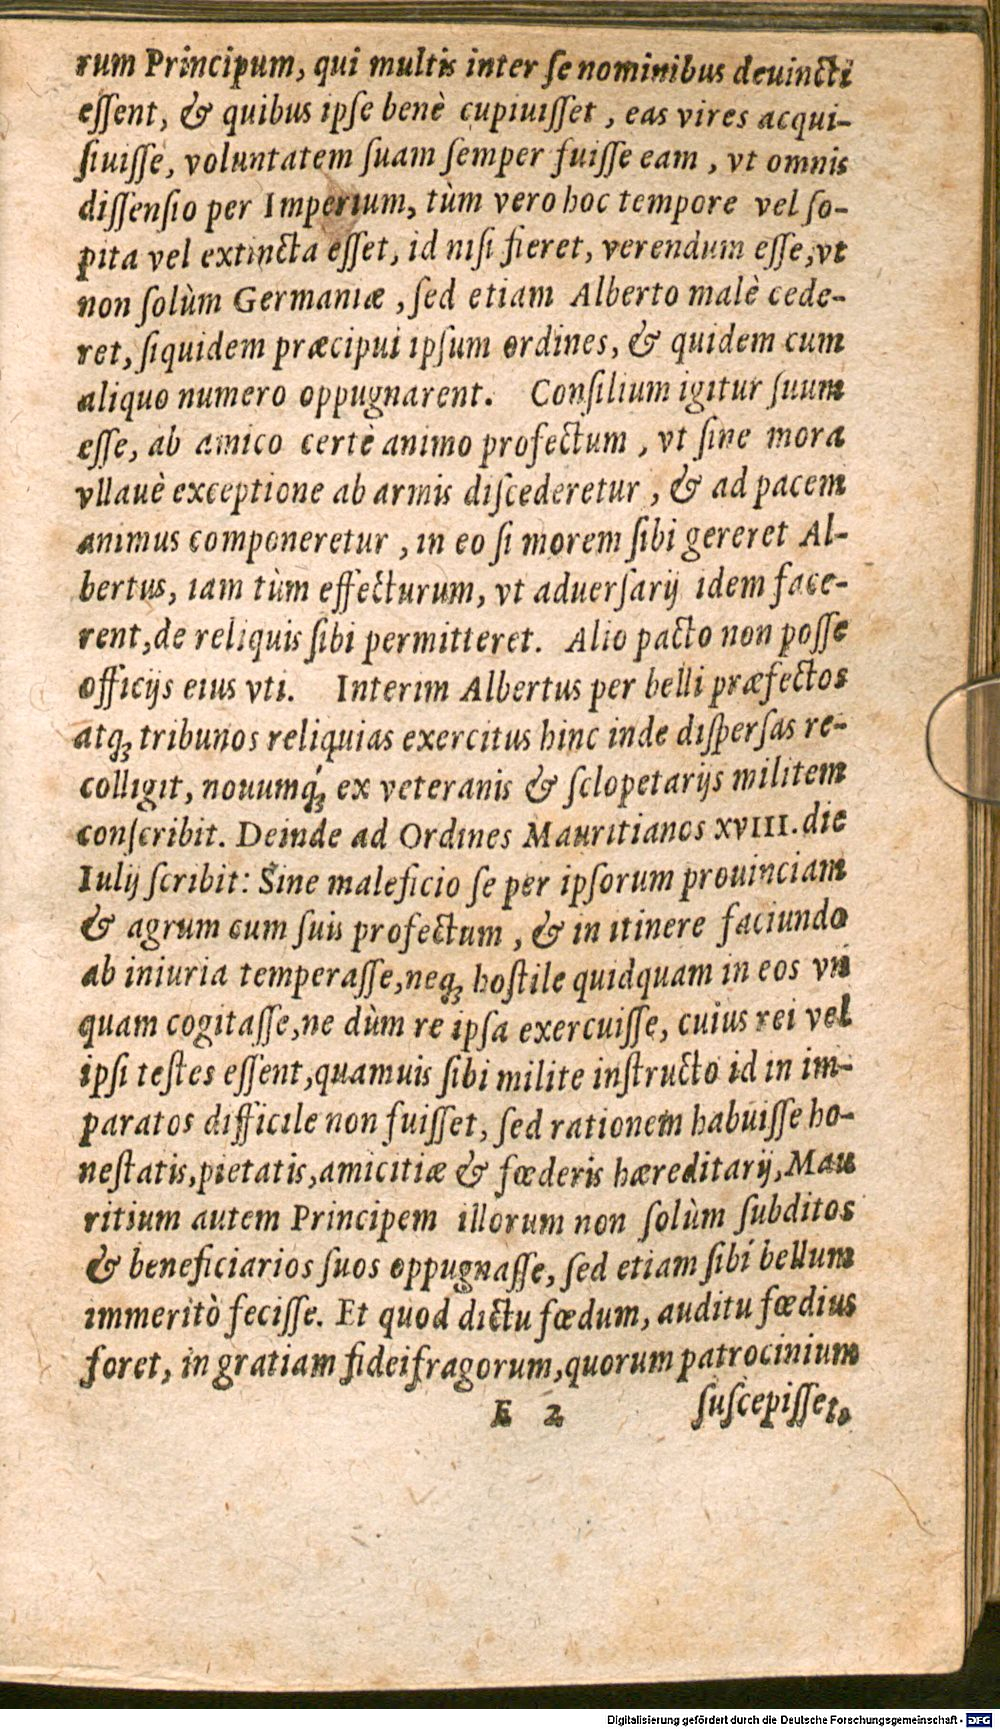 rum Principum, qui multis inter ſe nominibus deuincti
eſſent, & quibus ipſe benè cupiuiſſet, eas vires acqui-
ſiuiſſe, voluntatem ſuam ſemper fuiſſe eam, vt omnis
diſſenſio per Imperium, tùm vero hoc tempore vel ſo-
pita vel extincta eſſet, id niſi fieret, verendum eſſe, vt
non ſolùm Germaniæ, ſed etiam Alberto malè cede-
ret, ſiquidem præcipui ipſum ordines, & quidem cum
aliquo numero oppugnarent. Conſilium igitur ſuum
eſſe, ab amico certè animo profectum, vt ſine mora
vllauè exceptione ab armis diſcederetur, & ad pacem
animus componeretur, in eo ſi morem ſibi gereret Al-
bertus, iam tùm effecturum, vt aduerſarij idem face-
rent, de reliquis ſibi permitteret. Alio pacto non poſſe
officijs eius vti. Interim Albertus per belli præfectos
atq; tribunos reliquias exercitus hinc inde diſperſas re-
colligit, nouumq́; ex veteranis & ſclopetarijs militem
conſcribit. Deinde ad Ordines Mauritianos XVIII. die
Iulij ſcribit: Sine maleficio ſe per ipſorum prouinciam
& agrum cum ſuis profectum, & in itinere faciundo
ab iniuria temperaſſe, neq; hoſtile quidquam in eos vn
quam cogitaſſe, ne dùm re ipſa exercuiſſe, cuius rei vel
ipſi teſtes eſſent, quamuis ſibi milite inſtructo id in im-
paratos difficile non fuiſſet, ſed rationem habuiſſe ho-
neſtatis, pietatis, amicitiæ & fœderis hæreditarij, Mau
ritium autem Principem illorum non ſolùm ſubditos
& beneficiarios ſuos oppugnaſſe, ſed etiam ſibi bellum
immeritò feciſſe. Et quod dictu fœdum, auditu fœdius
foret, in gratiam fideifragorum, quorum patrocinium
E 2 ſuſcepiſſet,
Digitalisierung gefördert durch die Deutsche Forschungsgemeinschaft - DFG